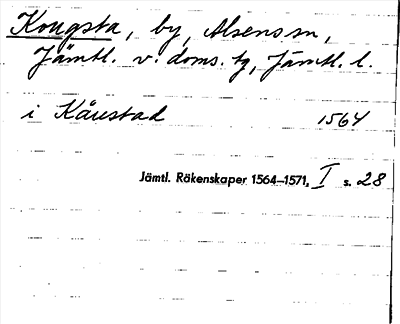 Kougsta, by, Alsens sn,
Jämtl. v. doms. tg, Jämtl. l.
i Kåustad 1564
Jämtl. Räkenskaper 1564–1571, I s. 28